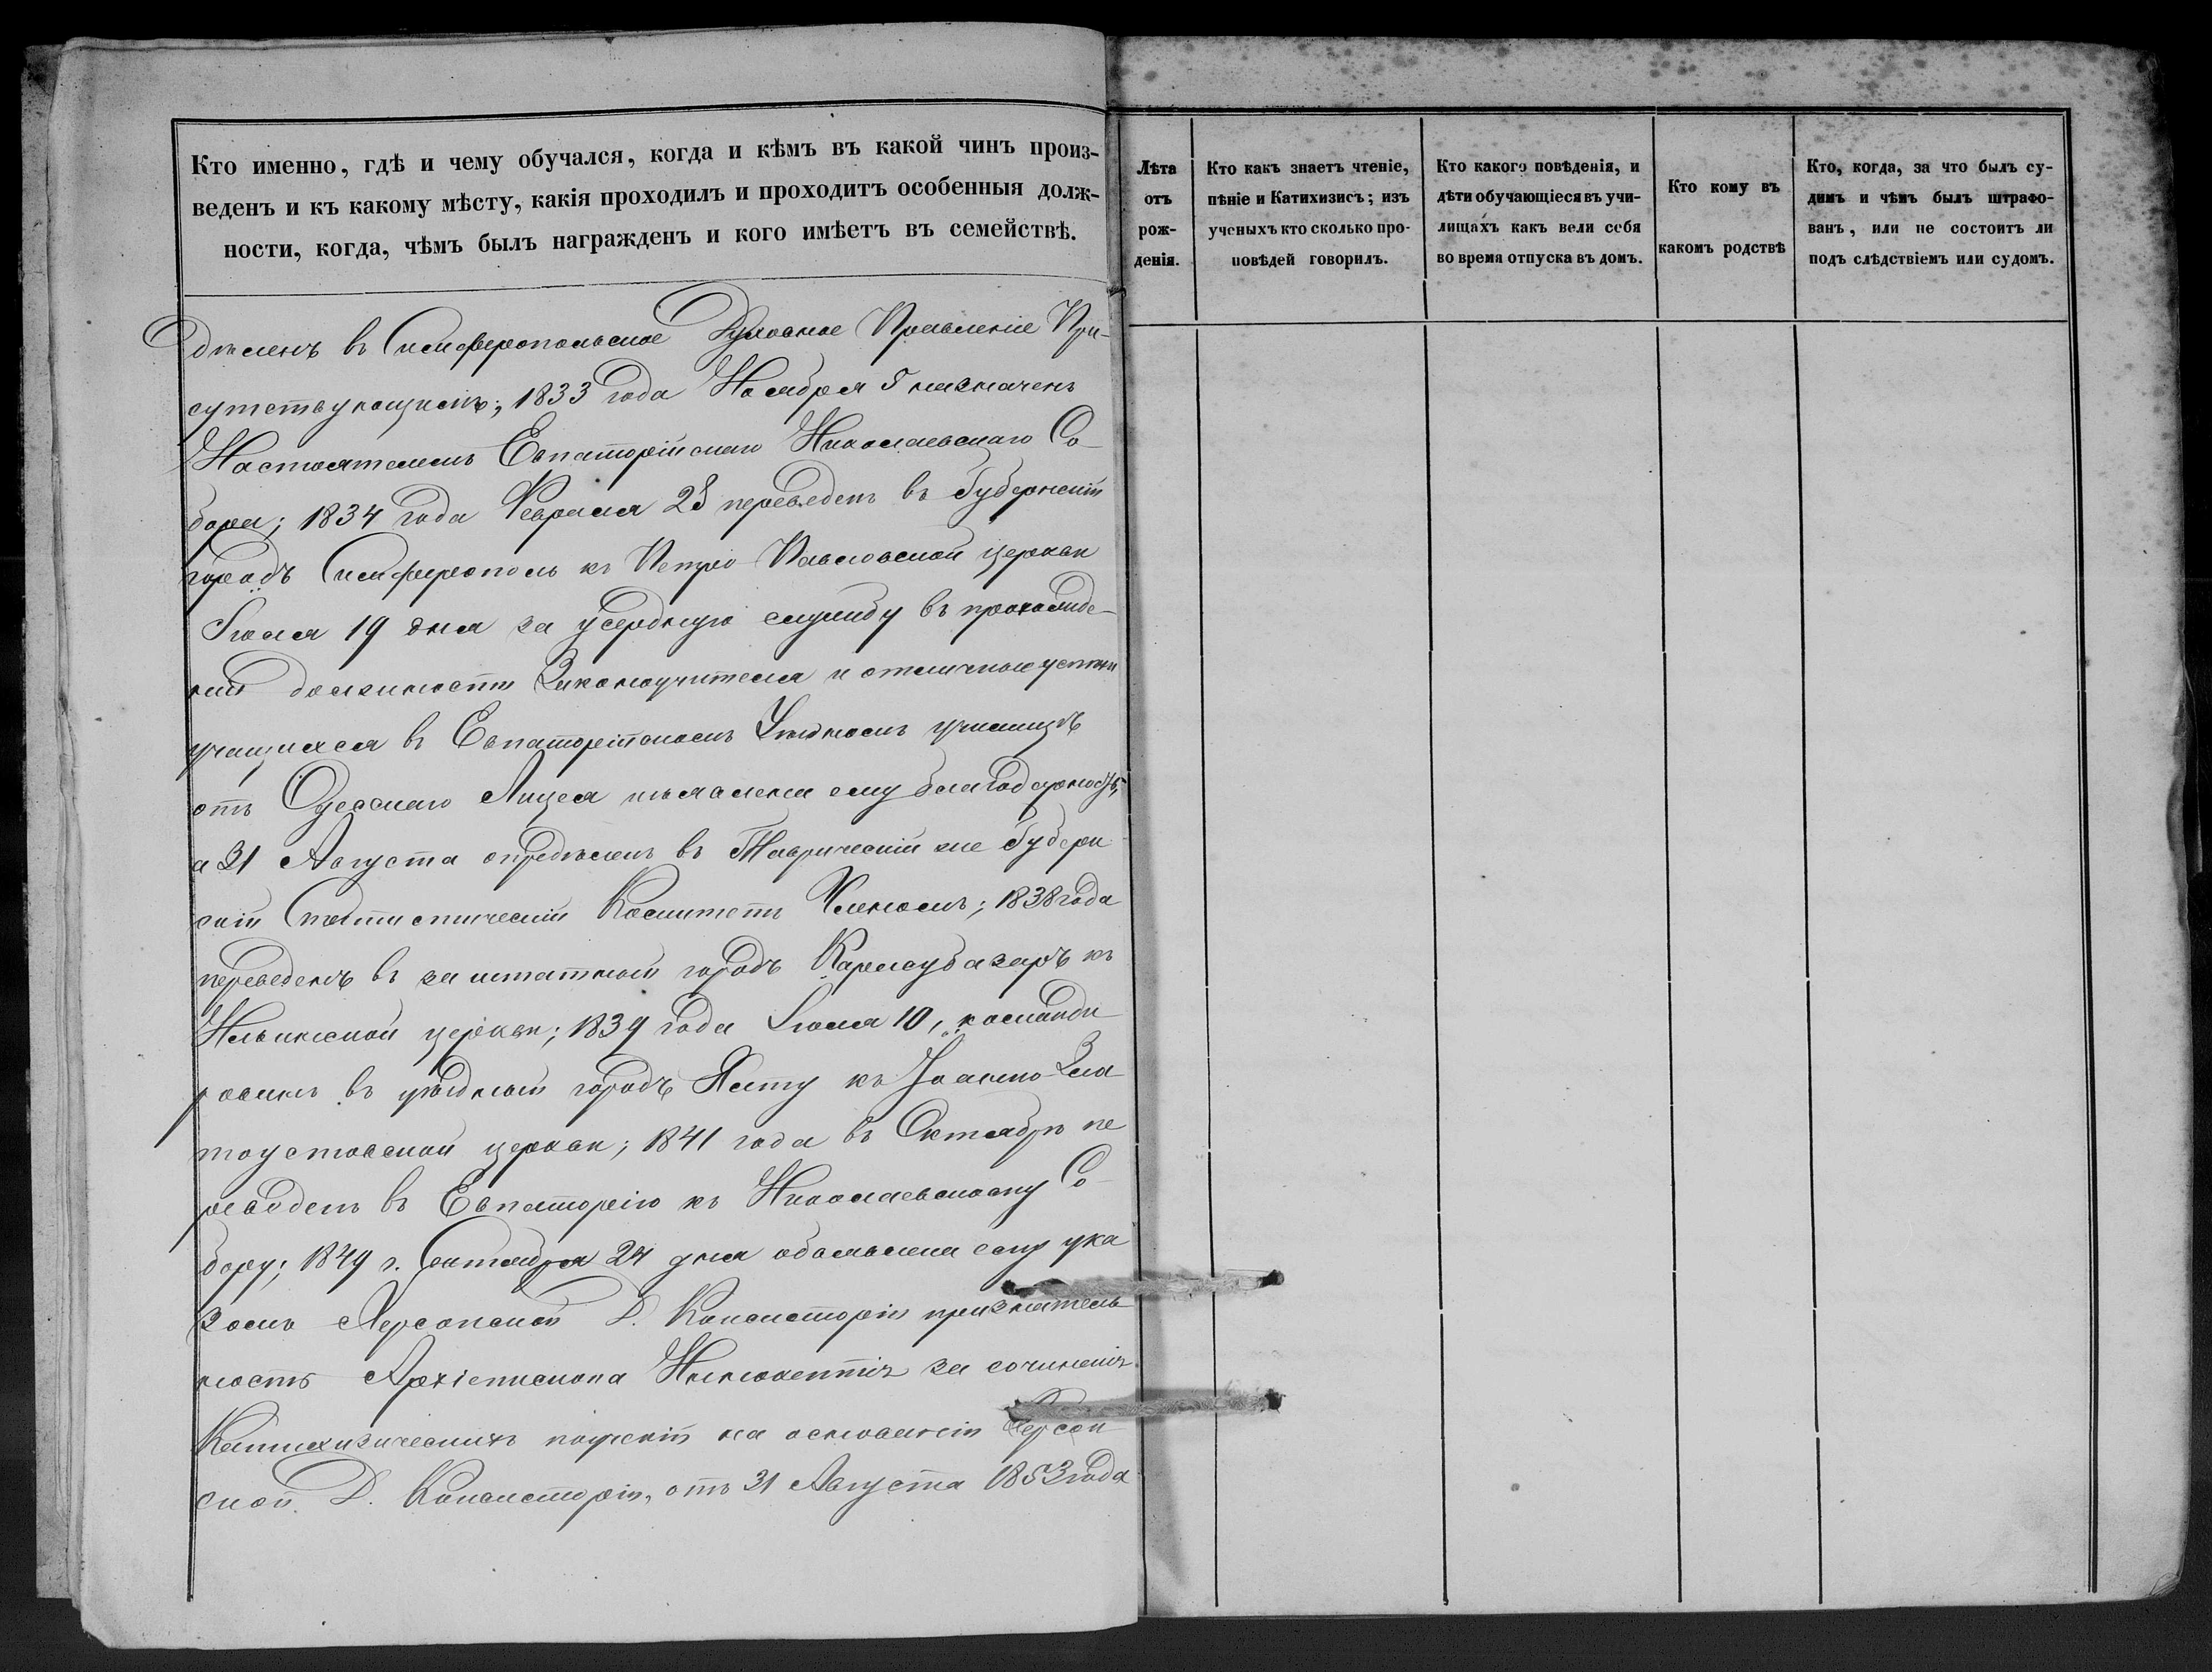 Кто именно, гдѣ и чему обучался, когда и кѣмъ въ какой чинъ произ-
веденъ и къ какому мѣсту, какія проходилъ и проходитъ особенныя долж-
ности, когда, чѣмъ былъ награжденъ и кого имѣетъ въ семействѣ.
Лѣта
отъ
рож-
денія.
Кто какъ знаетъ чтеніе,
пѣніе и Катихизисъ; изъ
ученыхъ кто сколько про-
повѣдей говорилъ.
Кто какого повѣденія, и
дѣти обучающіеся въ учи-
лищахъ какъ вели себя
во время отпуска въ домъ.
Кто кому въ
какомъ родствѣ
Кто, когда, за что былъ су-
димъ и чѣмъ былъ штрафо-
ванъ, или не состоитъ ли
подъ слѣдствіемъ или судомъ.
дѣленъ въ Симферопольское Духовное Правленіе При-
сутствующимъ; 1833 года Ноября 5 назначенъ
Настоятелемъ Евпаторійскаго Николаевскаго Со-
бора; 1834 года Февраля 23 переведенъ въ Губернскій
городъ Симферополь къ Петро-Павловской церкви
Іюля 19 дня за усердную службу въ прохожде-
ніи должности Законоучителя и отличные успѣхи
учащихся въ Евпаторійскомъ Уѣздномъ училищѣ
отъ Одесскаго Лицея изъявлена ему благодарность;
а 31 Августа опредѣленъ въ Таврическій же Губерн-
скій Статистическій Комитетъ Членомъ; 1838 года
переведенъ въ заштатный городъ Карасубазаръ къ
церкви; 1839 года Іюля 10, команди
рованъ въ уѣздный городъ Ялту къ Іоанно-Зла
тоустовской церкви; 1841 года въ Октябрѣ пе
реведенъ въ Евпаторію къ Николаевскому Со-
бору; 1849 г. Сентября 24 дня объявлена ему ука
зомъ Херсонской Д. Консисторіи признатель
ность Архіепископа Иннокентія за сочиненія
Катихизическихъ поученій на основаніи Херсон
ской Д. Консисторіи, отъ 31 Августа 1853 года